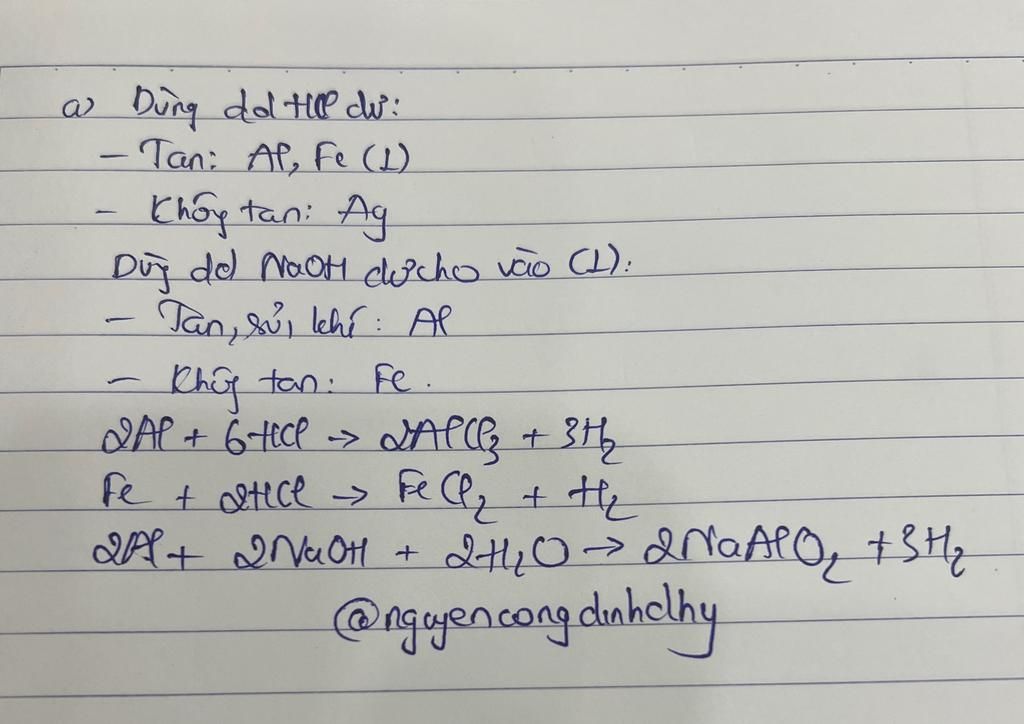 a) Dùng dd HCl dư:
- Tan: Al, Fe (1)
- Không tan: Ag
Dùng dd NaOH dư cho vào (1):
- Tan, sủi khí: Al
- Không tan: Fe.
2Al + 6HCl → 2AlCl₃ + 3H₂
Fe + 2HCl → FeCl₂ + H₂
2Al + 2NaOH + 2H₂O → 2NaAlO₂ + 3H₂
@nguyencongdinhclhy